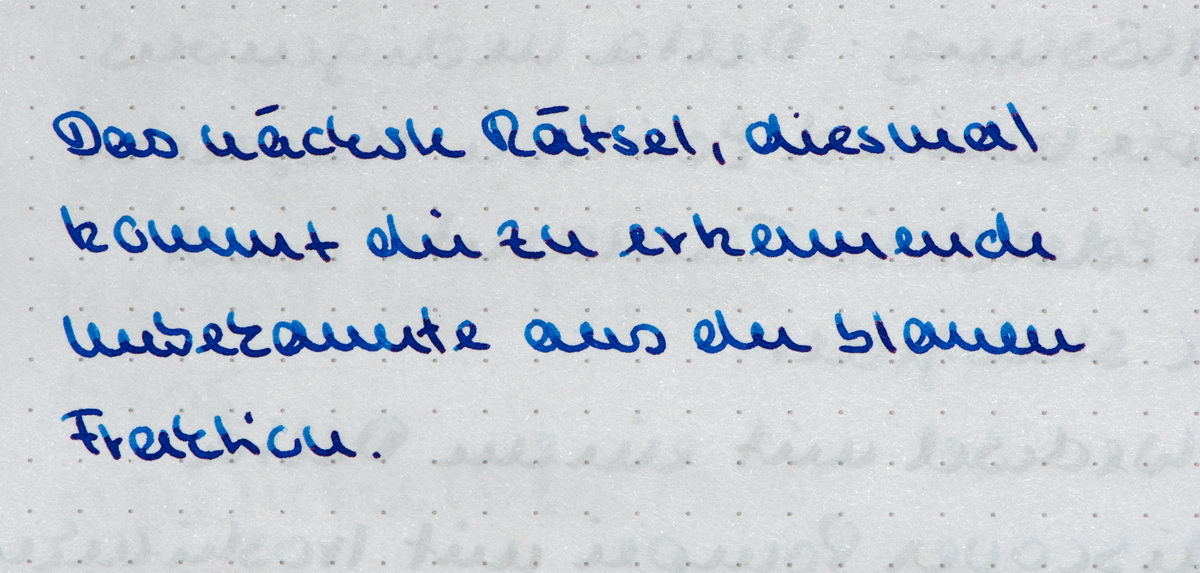 Das nächste Rätsel, diesmal
kommt die zu erkennende
Unbekannte aus der blauen
Fraktion.